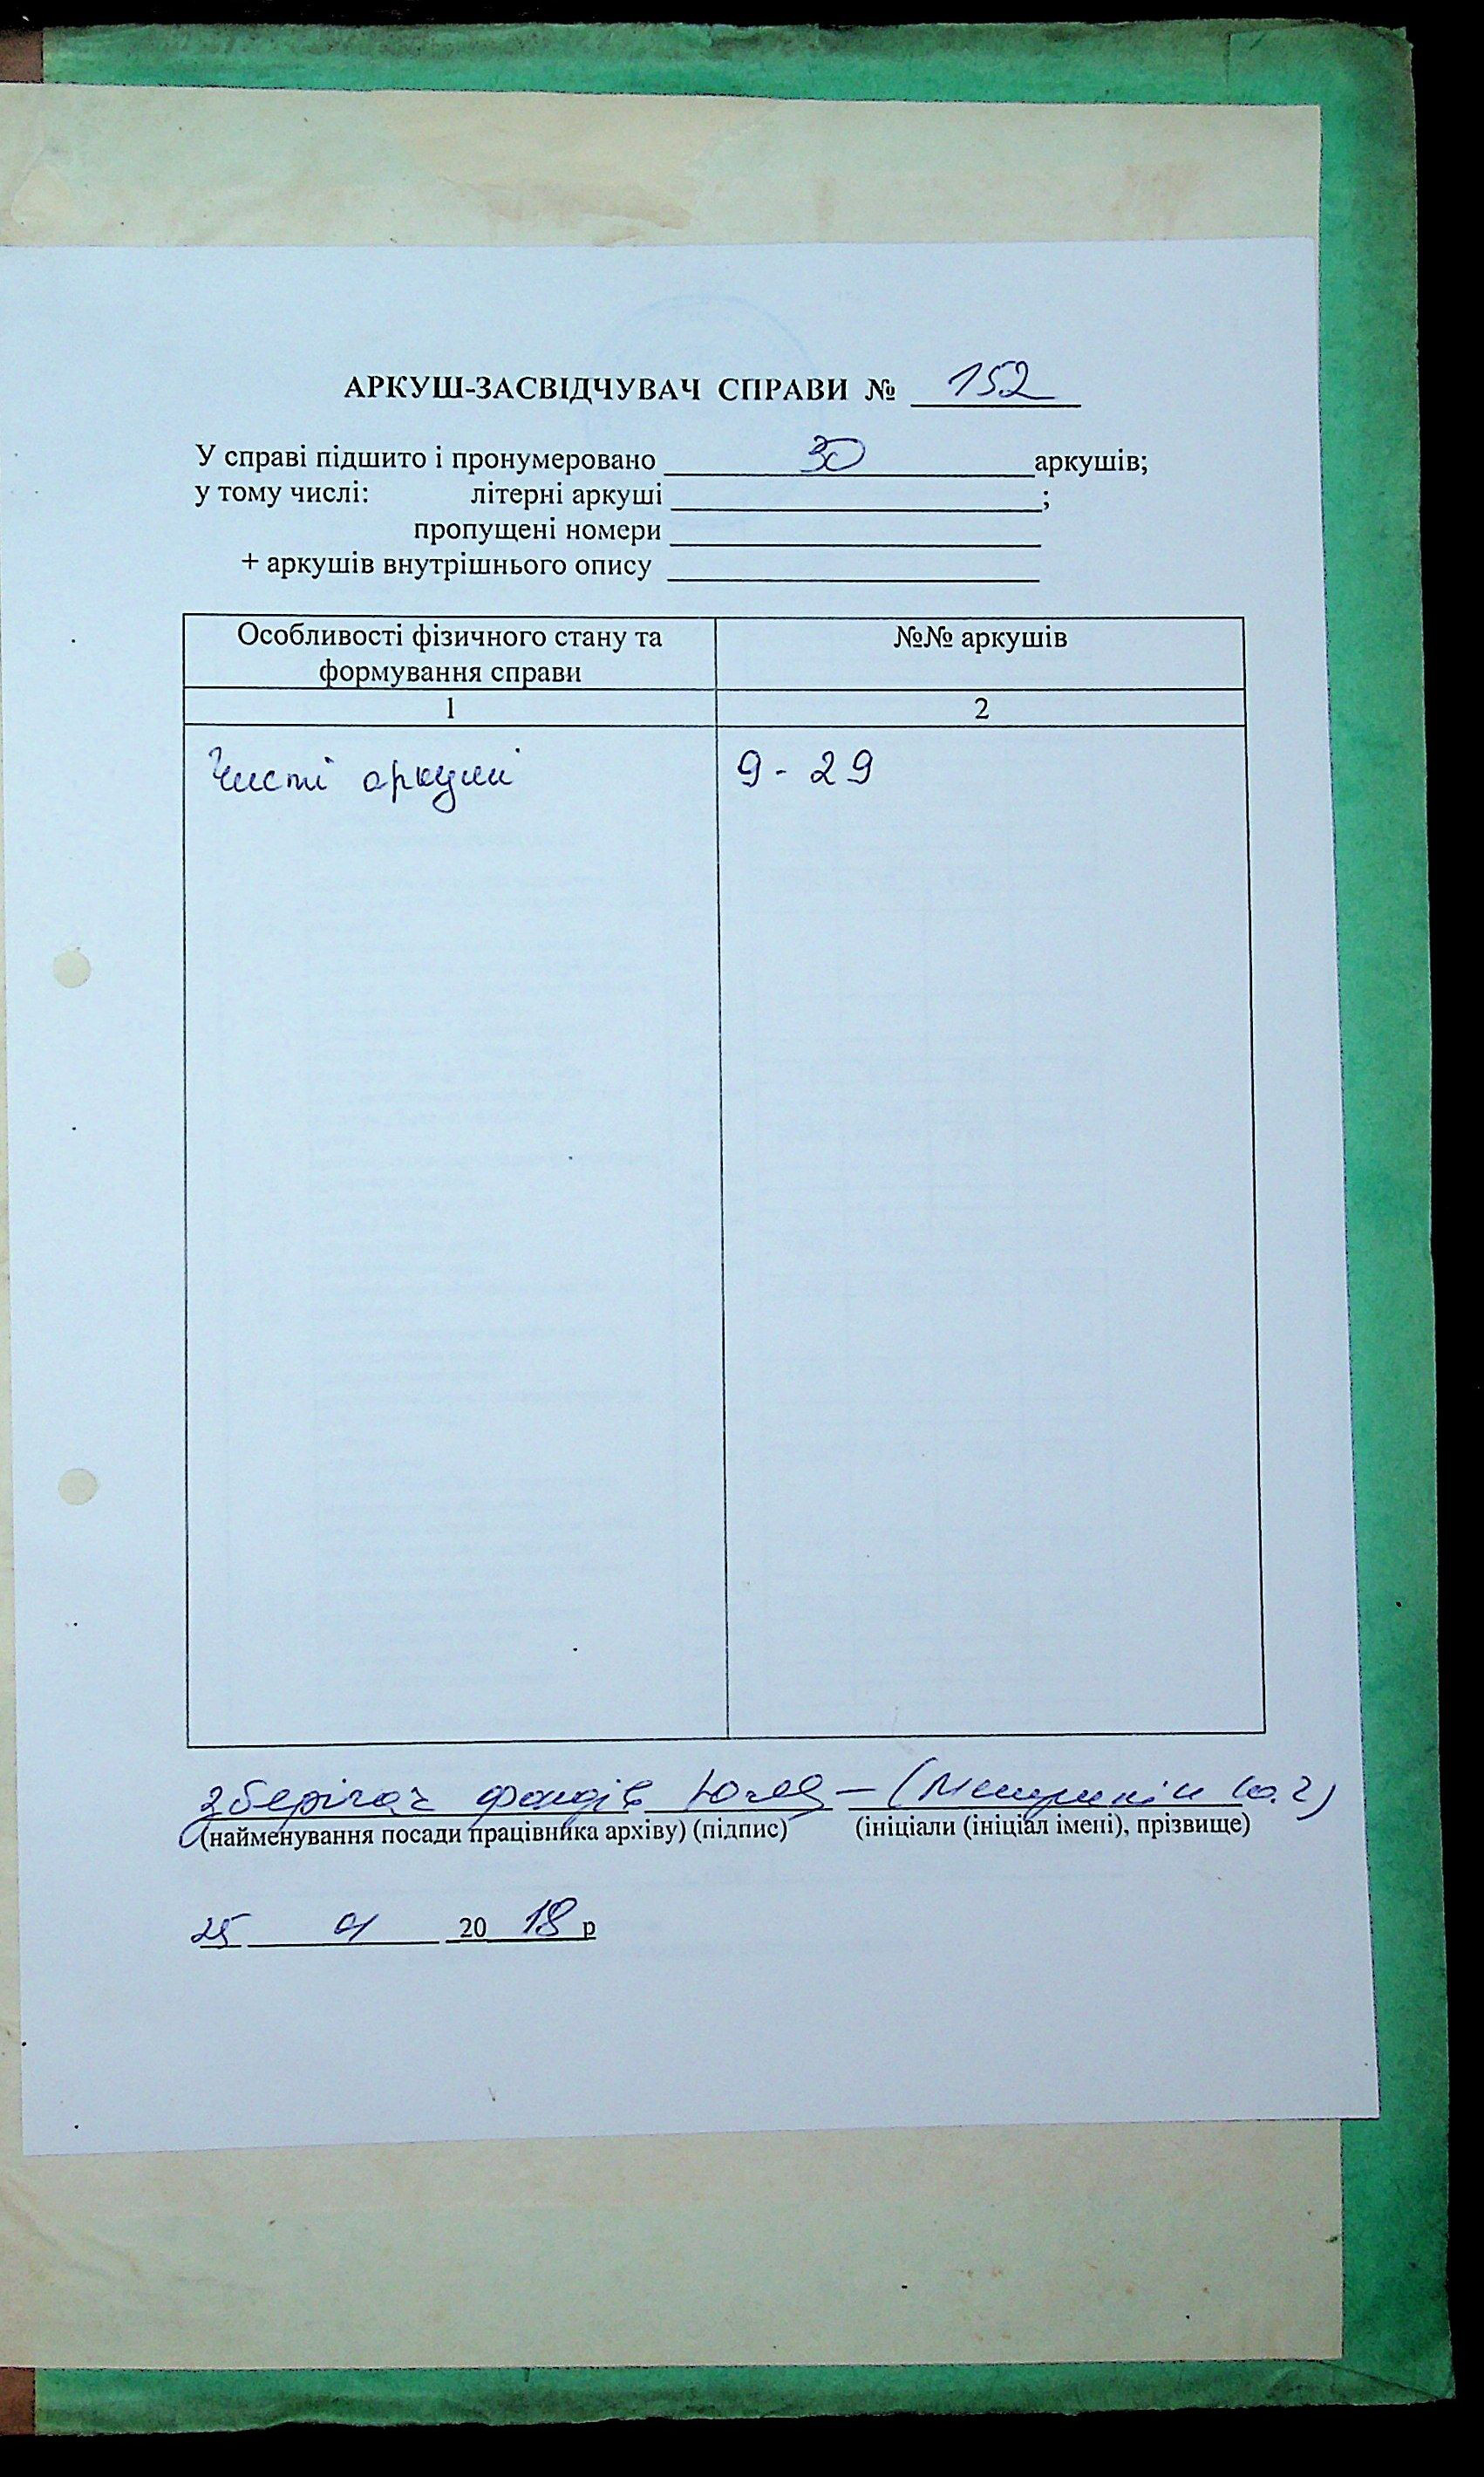 АРКУШ-ЗАСВІДЧУВАЧ СПРАВИ № 152
У справі підшито і пронумеровано 30 аркушів;
у тому числі: літерні аркуші ;
пропущені номери
+ аркушів внутрішнього опису
Особливості фізичного стану та
формування справи
№№ аркушів
1 2
Чисті аркуші 9 - 29
зберігач фондів
(найменування посади працівника архіву) (підпис) (ініціали (ініціал імені), прізвище)
25 01 20 18 р